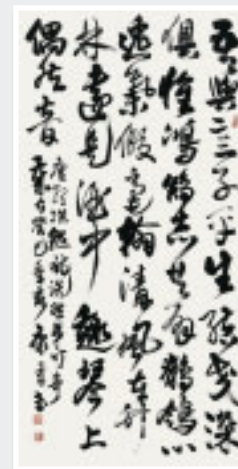 吾與二三子平生結交深
俱懷鴻鵠志共有鶺鴒心
逸氣假毫翰清風在竹
林達是酒中趣琴上
偶然音